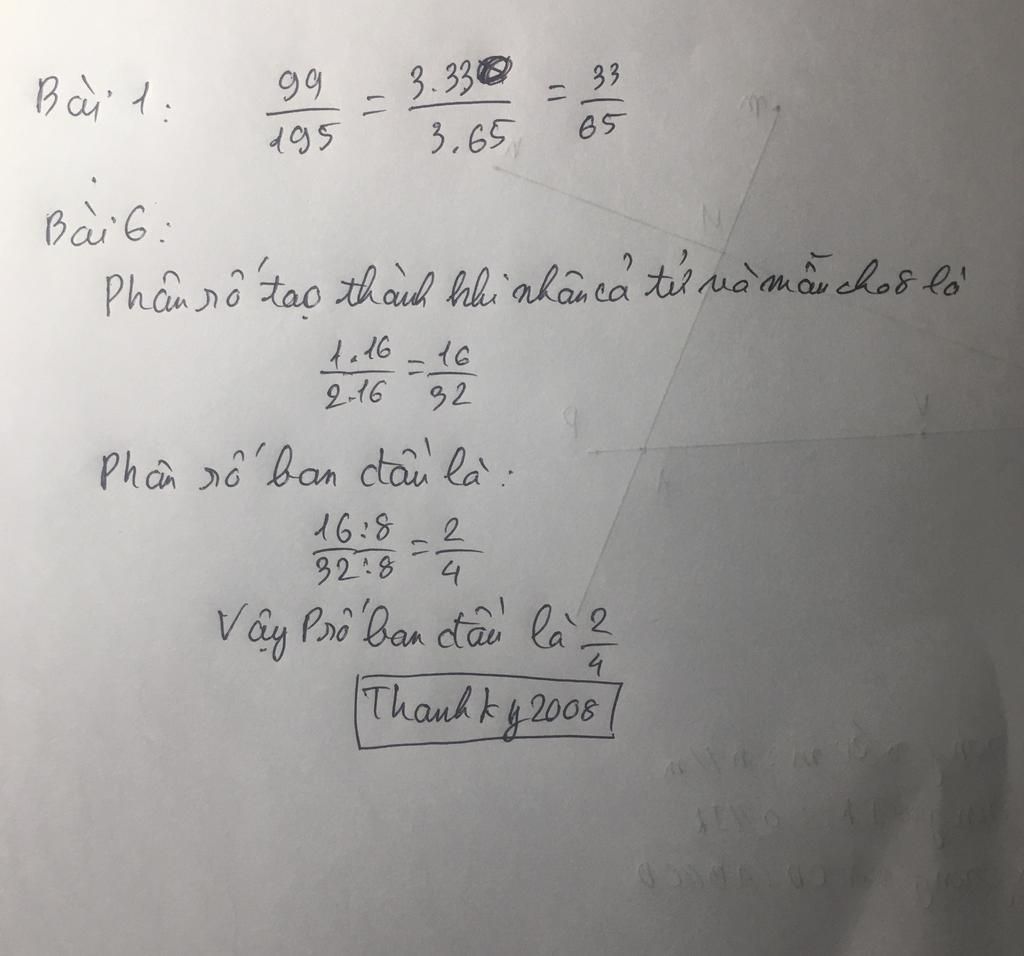 Bài 1: 99/195 = 3.33/3.65 = 33/65
Bài 6:
Phân số tạo thành khi nhân cả tử và mẫu cho 8 là
1.16/2.16 = 16/32
Phân số ban đầu là:
16:8/32:8 = 2/4
Vậy Psố ban đầu là 2/4
Thanhky2008